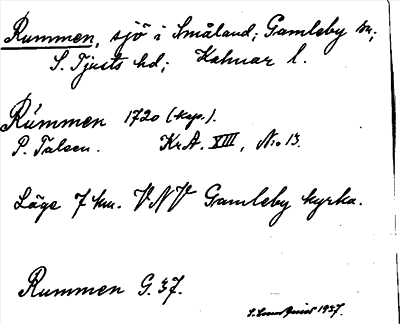 Rummen, sjö i Småland; Gamleby sn;
S. Tjusts hd; Kalmar l.
Rúmmen 1720 (kop.).
P. Talsen. Kr.A. XIII, No 13.
Läge 7 km. VNV Gamleby kyrka.
Rummen G. 37.
1937.